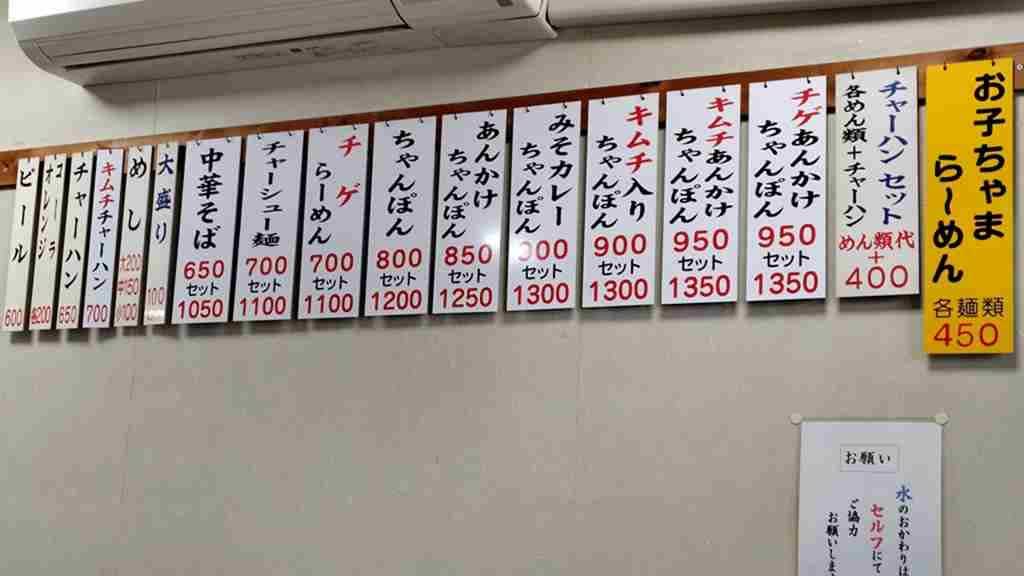 お子ちゃま
らーめん
各麺類
450
チャーハンセット
各めん類+チャーハン
めん類代
+
400
チゲあんかけ
ちゃんぽん
950
セット
1350
キムチあんかけ
ちゃんぽん
950
セット
1350
キムチ入り
ちゃんぽん
900
セット
1300
みそカレー
ちゃんぽん
セット
1300
あんかけ
ちゃんぽん
850
セット
1250
ちゃんぽん
800
セット
1200
チゲ
らーめん
700
セット
1100
チャーシュー麺
700
セット
1100
中華そば
650
セット
1050
大盛り
100
めし
大200
中150
小100
キムチチャーハン
700
チャーハン
650
コーラ
オレンジ
各200
ビール
600
お願い
水のおかわりは
セルフにて
ご協力
お願いしま